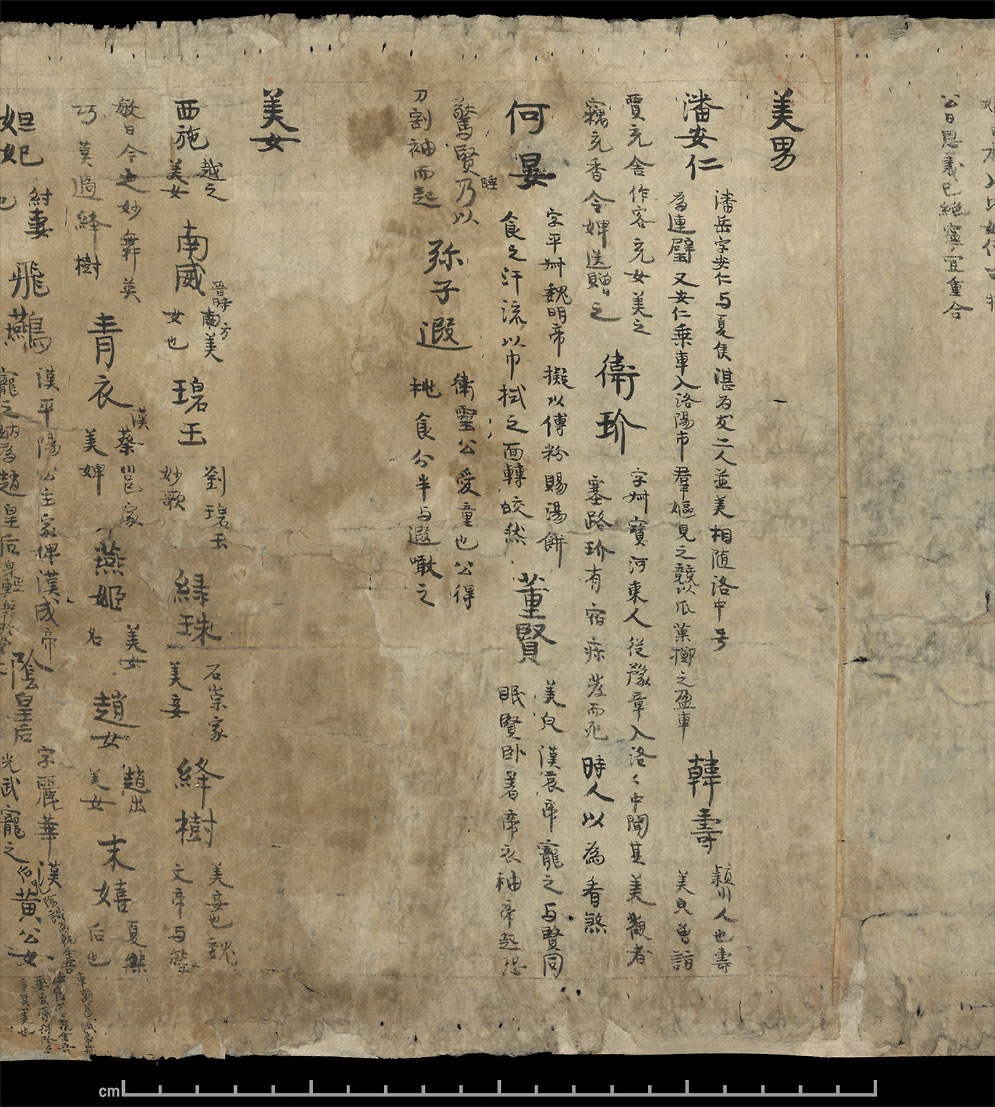 公曰恩義已絕寧宜重合
美男
潘安仁
潘岳字安仁与夏侯湛為友二人並美相随洛中号
為連璧又安仁乗車入洛陽市群嫗見之競以瓜菓擲之盈車
韓壽
潁川人也壽
美皃曽詣
賈充舍作客充女美之
竊充香令婢送贈之
衛玠
字叔寶河東人從豫章入洛々中聞其美觀者
塞路玠有宿疹發而死時人以為看煞
何晏
字平叔魏明帝擬以傅粉賜湯餅
食之汗流以巾拭之面轉皎然
董賢
美皃漢哀帝寵之与賢同
眠賢卧著帝衣袖帝起恐
驚賢睡乃以
刀割袖而起
弥子遐
衛靈公愛童也公得
桃食分半与遐噉之
美女
西施
越之
美女
南威
晉時南方美
女也
碧玉
劉碧玉
妙歌
緑珠
石崇家
美妾
絳樹
美妾也魏
文帝与繁
敏曰今之妙舞莫
巧莫過絳樹
青衣
漢蔡邕家
美婢
燕姬
美女
名
趙女
趙出
美女
末嬉
夏桀
后也
妲妃
紂妻
也
飛鷰
漢平陽公主家婢漢成帝
寵之納為趙皇后身輕
陰皇后
字麗華漢
光武寵之
黃公女